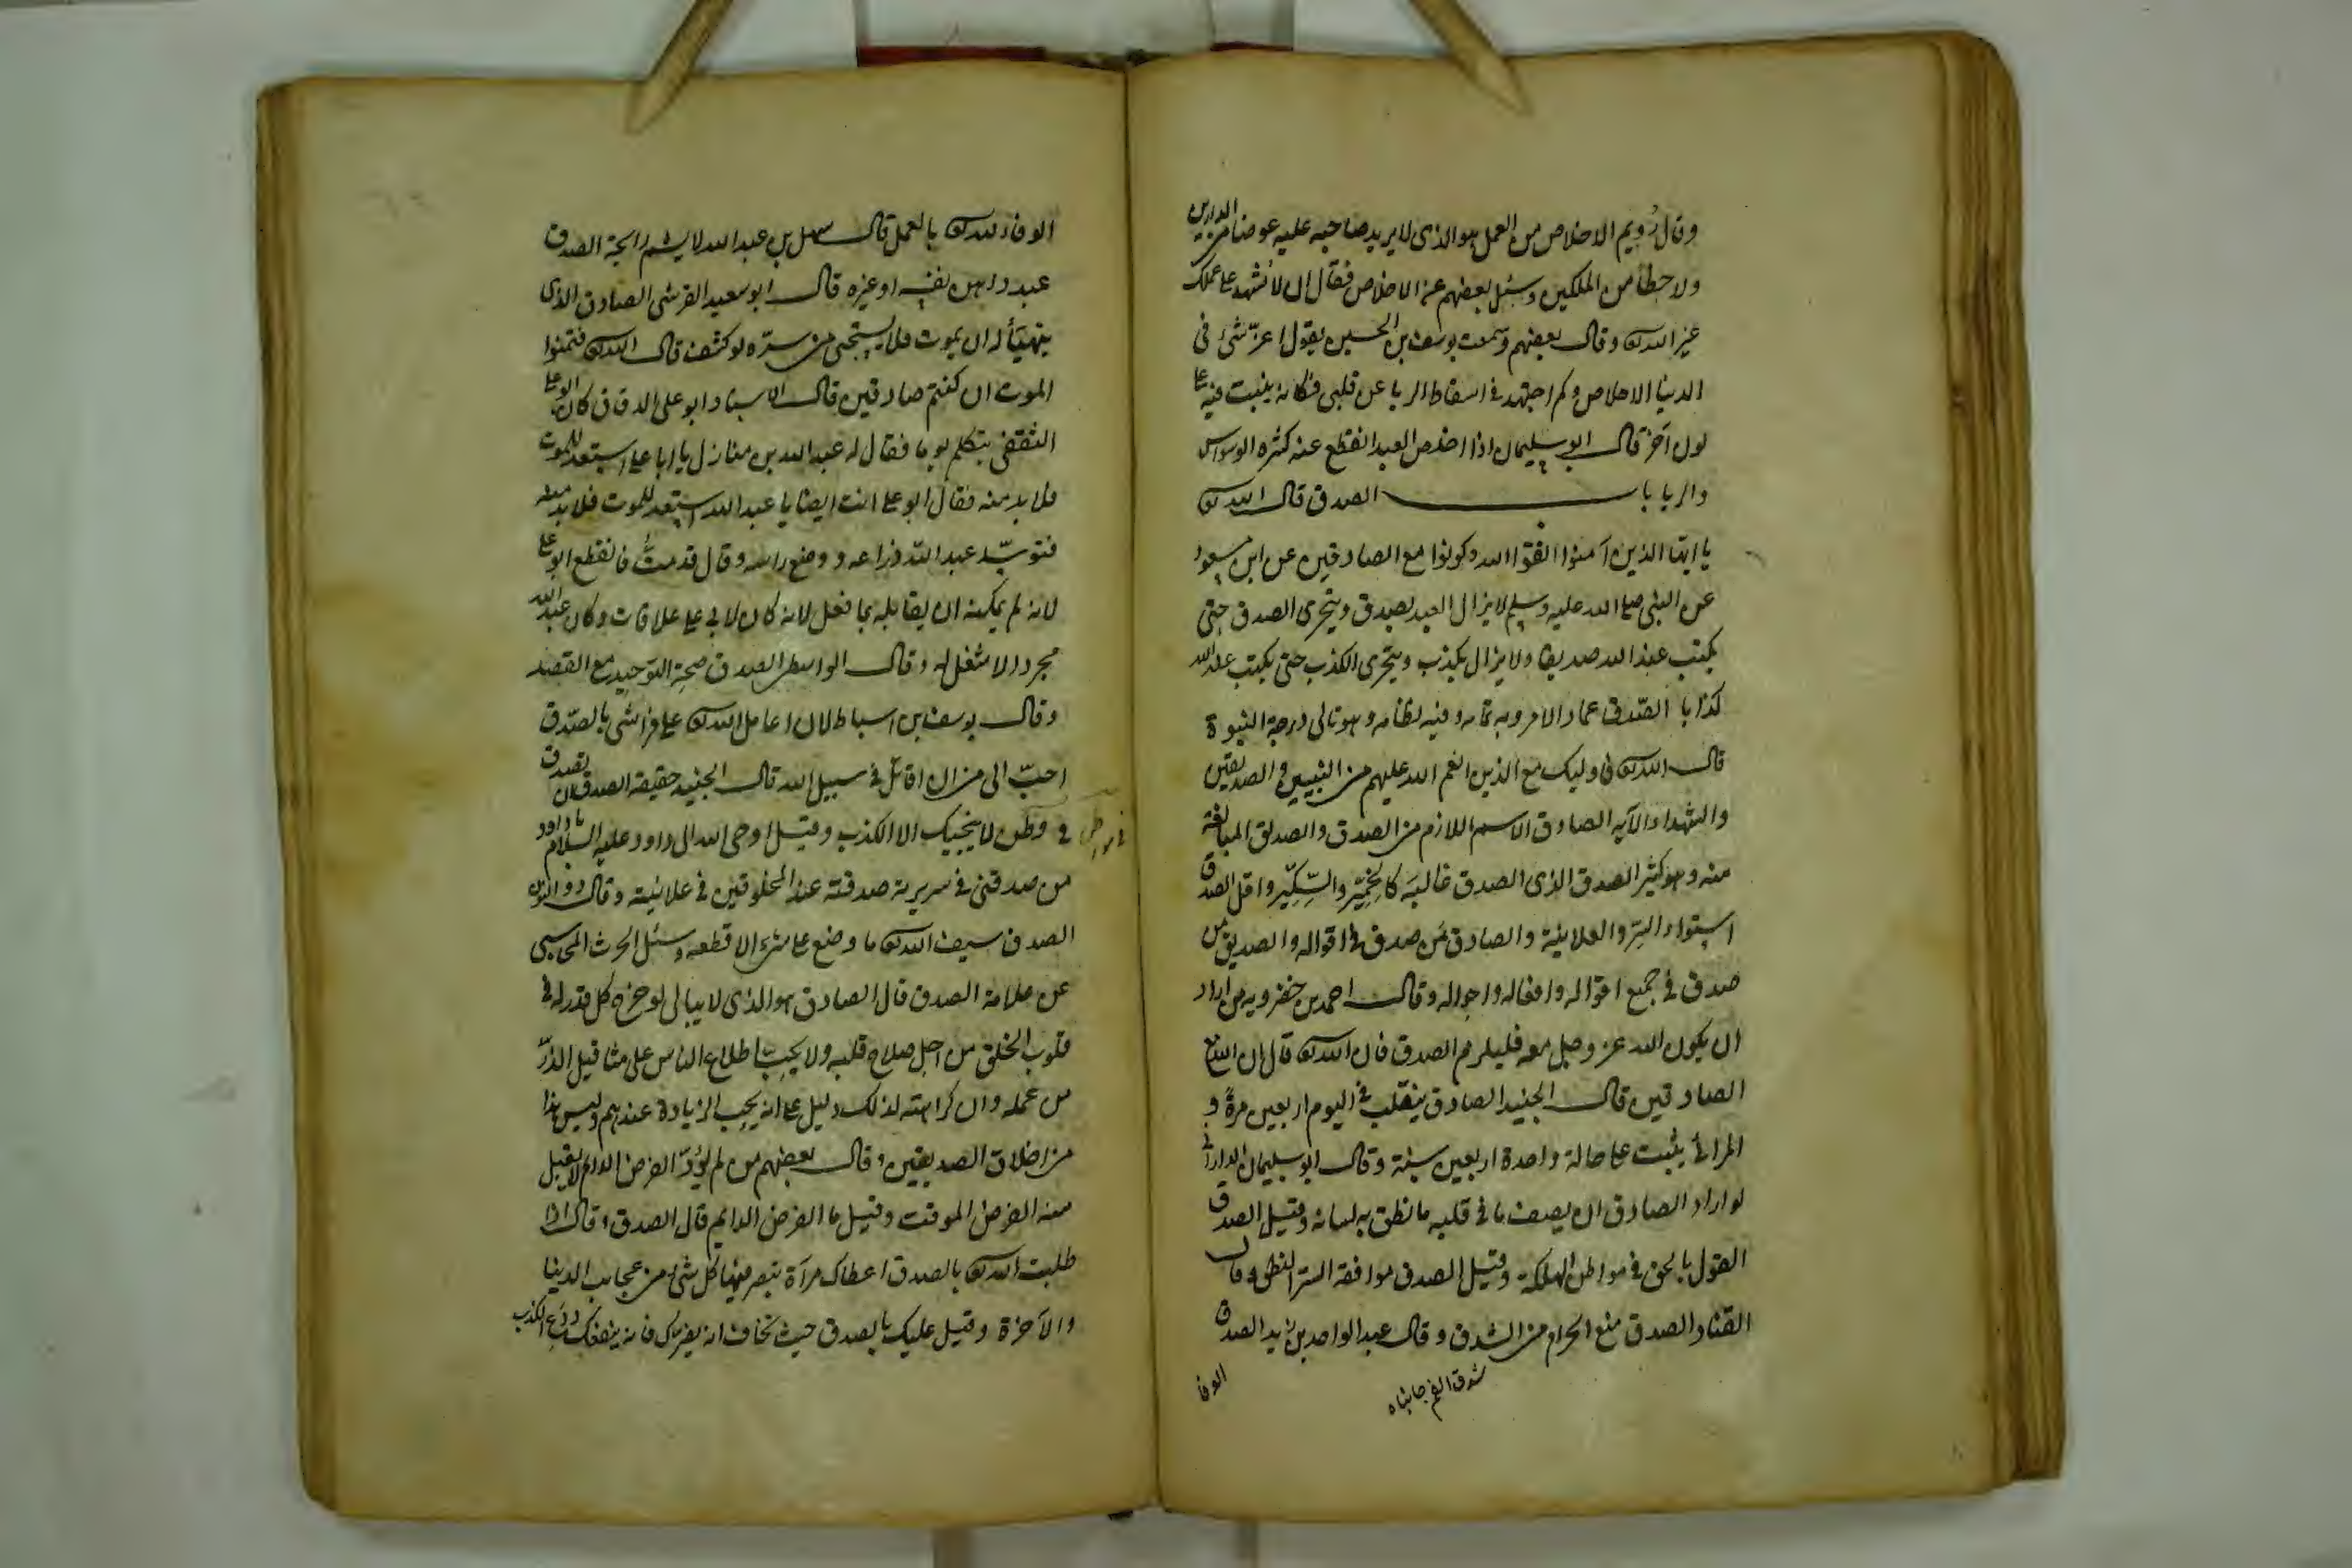 وقال رُويم الاخلاص من العمل هو الذى لا يريد صاحبه عليه عوضا من الدارين
ولا حظا من الملكين وسئل بعضهم عن الاخلاص فقال ان لا تشهد على عملك
غير الله تعالى وقال بعضهم وسمعت يوسف بن الحسين يقول اعزّ شئ فى
الدنيا الاخلاص وكم اجتهد فى اسقاط الريا عن قلبى فكانه ينبت فيه على
لون آخر قال ابو سليمان اذا اخلص العبد انقطع عنه كثرة الوسواس
والريا باب الصدق قال الله تعالى
يا ايها الذين آمنوا اتقوا الله وكونوا مع الصادقين عن ابن مسعود
عن النبى صلى الله عليه وسلم لا يزال العبد يصدق ويتحرى الصدق حتى
يكتب عند الله صديقا ولا يزال يكذب ويتحرى الكذب حتى يكتب عند الله
كذابا الصّدق عماد الامر وبه تمامه وفيه نظامه وهو تالى درجة النبوة
قال الله تعالى فاوليك مع الذين انعم الله عليهم من النبيين والصديقين
والشهداء الآيه الصادق الاسم اللازم من الصدق والصديق المبالغة
منه وهو كثير الصدق الذى الصدق غالبه كالخِمّير والسِّكِّير واقل الصدق
استواء السّر والعلانية والصادق مَن صدق فى اقواله والصديق مَن
صدق فى جميع اقواله وافعاله واحواله وقال احمد بن خضرويه من اراد
ان يكون الله عز وجل معه فليلزم الصدق فان الله تعالى قال ان الله مع
الصادقين قال الجنيد الصادق ينقلب فى اليوم اربعين مرة و
المرائى يثبت على حالة واحدة اربعين سنة وقال ابو سليمان الدارانى
لو اراد الصادق ان يصف ما فى قلبه ما نطق به لسانه وقيل الصدق
القول بالحق فى مواطن الهلكة وقيل الصدق موافقة السّر النطق وقال
القناد الصدق منع الحرام من الشدق وقال عبد الواحد بن زيد الصدق
شدق الفم جانباه
الوفا
الوفاء لله تعالى بالعمل قال سهل بن عبد الله لا يشم رايحة الصدق
عبد داهن نفسه او غيره قال ابو سعيد القرشى الصادق الذى
يتهيّأ له ان يموت ولا يستحيى من سرّه لو كشف قال الله تعالى فتمنوا
الموت ان كنتم صادقين قال الاستاد ابو على الدقاق كان ابو على
الثقفى يتكلم يوما فقال له عبد الله بن منازل يا ابا على استعد للموت
فلا بد منه فقال ابو على انت ايضا يا عبد الله استعد للموت فلا بد منه
فتوسّد عبد الله ذراعه ووضع راسه وقال قد متُّ فانقطع ابو على
لانه لم يمكنه ان يقابله بما فعل لانه كان لابى على علاقات وكان عبد الله
مجردا لا شغل له وقال الواسطى الصدق صحة التوحيد مع القصد
وقال يوسف بن اسباط لان اعامل الله تعالى على فراشى بالصّدق
احبّ الى من ان اقاتل فى سبيل الله قال الجنيد حقيقة الصدق ان تصدق
فى وطن لا ينجيك الا الكذب وقيل اوحى الله الى داود عليه السلام يا داود
من صدقنى فى سريرته صدقته عند المخلوقين فى علانيته وقال ذو النون
الصدق سيف الله تعالى ما وضع على شئ الا قطعه وسئل الحرث المحاسبى
عن علامة الصدق قال الصادق هو الذى لا يبالى لو خرج كل قدر له فى
قلوب الخلق من اجل صلاح قلبه ولا يحبّ اطلاع الناس على مثاقيل الذرّ
من عمله وان كراهته لذلك دليل على انه يحب الزيادة عندهم وليس هذا
من اخلاق الصديقين وقال بعضهم من لم يؤدّ الفرض الدايم لا يقبل
منه الفرض الموقت وقيل ما الفرض الدايم قال الصدق وقال اذا
طلبت الله تعالى بالصدق اعطاك مرآة تبصر فيها كل شئ من عجايب الدنيا
والآخرة وقيل عليك بالصدق حيث تخاف انه يضرك فانه ينفعك ودع الكذب